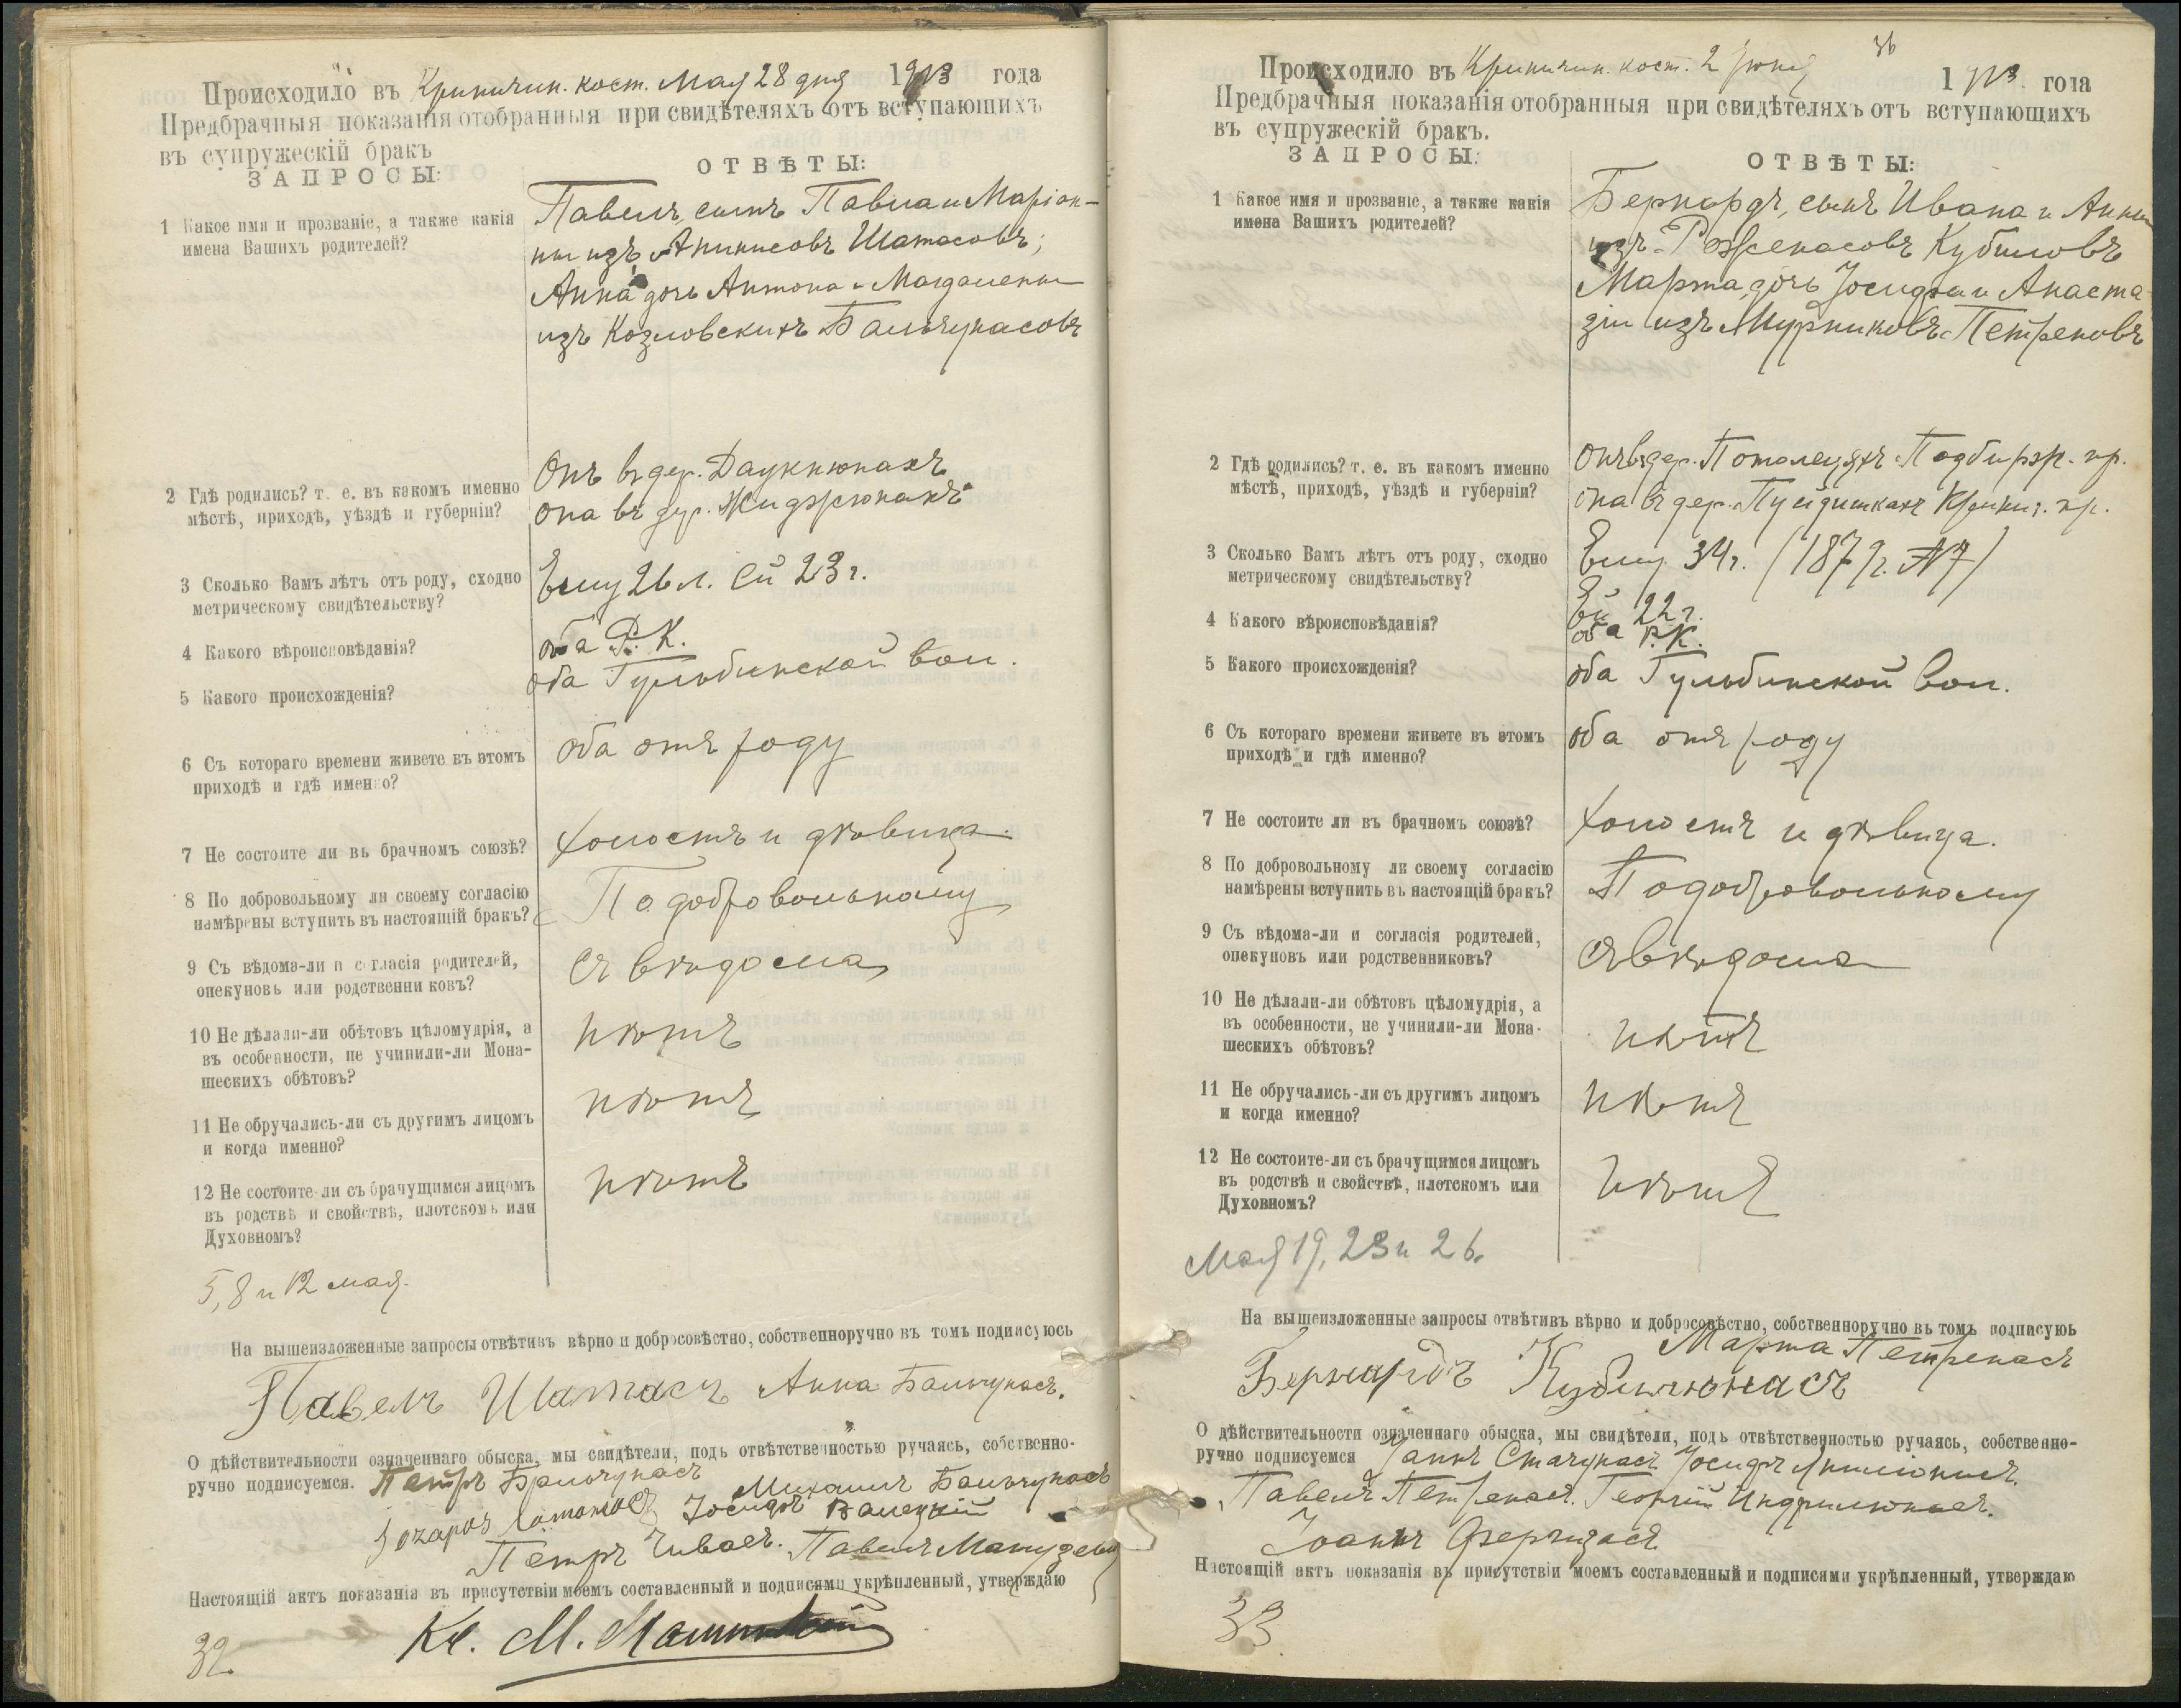 Происходило въ Криничин. кост. Мая 28 дня 1913 года
Предбрачныя показанія отобранныя при свидѣтеляхъ отъ вступающихъ
въ супружескій бракъ
ЗАПРОСЫ: ОТВѢТЫ:
1 Какое имя и прозваніе, а также какія
имена Вашихъ родителей?
Павелъ, сынъ Павла и Маріан-
ны изъ Шатасовъ;
Анна дочь Антона и Магдалены
изъ Козловскихъ Бальчунасовъ
2 Гдѣ родились? т. е. въ какомъ именно
мѣстѣ, приходѣ, уѣздѣ и губерніи?
Онъ въ дер. Даукнюнахъ
она въ дер. Жиджюнахъ
3 Сколько Вамъ лѣтъ отъ роду, сходно
метрическому свидѣтельству?
Ему 26 л. Ей 23 г.
4 Какого вѣроисповѣданія?
оба Р. К.
5 Какого происхожденія?
оба Гульбинской вол.
6 Съ котораго времени живете въ этомъ
приходѣ и гдѣ именно?
оба отъ роду
7 Не состоите ли въ брачномъ союзѣ?
холостъ и дѣвица.
8 По добровольному ли своему согласію
намѣрены вступить въ настоящій бракъ?
По добровольному
9 Съ вѣдома-ли и согласія родителей,
опекуновъ или родственниковъ?
Съ вѣдома
10 Не дѣлали-ли обѣтовъ цѣломудрія, а
въ особенности, не учинили-ли Мона-
шескихъ обѣтовъ?
нѣтъ
11 Не обручались-ли съ другимъ лицомъ
и когда именно?
нѣтъ
12 Не состоите-ли съ брачущимся лицомъ
въ родствѣ и свойствѣ, плотскомъ или
Духовномъ?
нѣтъ
5, 8 и 12 мая.
На вышеизложенные запросы отвѣтивъ вѣрно и добросовѣстно, собственноручно въ томъ подписуюсь
Павелъ Шатасъ Анна Бальчунасъ.
О дѣйствительности означеннаго обыска, мы свидѣтели, подъ отвѣтственностью ручаясь, собственно-
ручно подписуемся. Петръ Бальчунасъ Михаилъ Бальчунасъ
Іосифъ Валецкій
Петръ Чивасъ. Павелъ
Настоящій актъ показанія въ присутствіи моемъ составленный и подписями укрѣпленный, утверждаю
32 Кс. М.
36
Происходило въ Криничин. кост. 2 Іюня 1913 года
Предбрачныя показанія отобранныя при свидѣтеляхъ отъ вступающихъ
въ супружескій бракъ.
ЗАПРОСЫ: ОТВѢТЫ:
1 Какое имя и прозваніе, а также какія
имена Вашихъ родителей?
Бернардъ, сынъ Ивана и Анны
изъ Кубиловъ
Марта, дочь Іосифа и Анаста
зіи изъ Мурниковъ Петреновъ
2 Гдѣ родились? т. е. въ какомъ именно
мѣстѣ, приходѣ, уѣздѣ и губерніи?
онъ въ дер. Подбирж. пр.
она въ дер. Пуйдишкахъ Кринич. пр.
3 Сколько Вамъ лѣтъ отъ роду, сходно
метрическому свидѣтельству?
Ему 34 г. (1879 г. №7)
Ей 22 г.
4 Какого вѣроисповѣданія?
оба Р.К.
5 Какого происхожденія?
оба Гульбинской вол.
6 Съ котораго времени живете въ этомъ
приходѣ и гдѣ именно?
оба отъ роду
7 Не состоите ли въ брачномъ союзѣ?
холостъ и дѣвица.
8 По добровольному ли своему согласію
намѣрены вступить въ настоящій бракъ?
По добровольному
9 Съ вѣдома-ли и согласія родителей,
опекуновъ или родственниковъ?
Съ вѣдома
10 Не дѣлали-ли обѣтовъ цѣломудрія, а
въ особенности, не учинили-ли Мона-
шескихъ обѣтовъ?
нѣтъ
11 Не обручались-ли съ другимъ лицомъ
и когда именно?
нѣтъ
12 Не состоите-ли съ брачущимся лицомъ
въ родствѣ и свойствѣ, плотскомъ или
Духовномъ?
нѣтъ
Мая 19, 23 и 26.
На вышеизложенные запросы отвѣтивъ вѣрно и добросовѣстно, собственноручно въ томъ подписуюь
Марта Петренасъ
Бернардъ Кубилюнасъ
О дѣйствительности означеннаго обыска, мы свидѣтели, подъ отвѣтственностью ручаясь, собственно-
ручно подписуемся Іосифъ
Павелъ Петренасъ. Георгій Индрилюнасъ.
Іоаннъ
Настоящій актъ показанія въ присутствіи моемъ составленный и подписями укрѣпленный, утверждаю
33